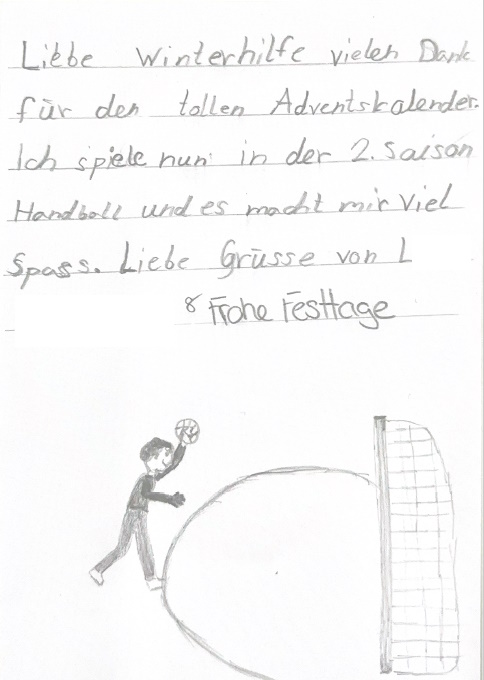 Liebe Winterhilfe vielen Dank
für den tollen Adventskalender.
Ich spiele nun in der 2. Saison
Handball und es macht mir viel
Spass. Liebe Grüsse von L
& Frohe Festtage